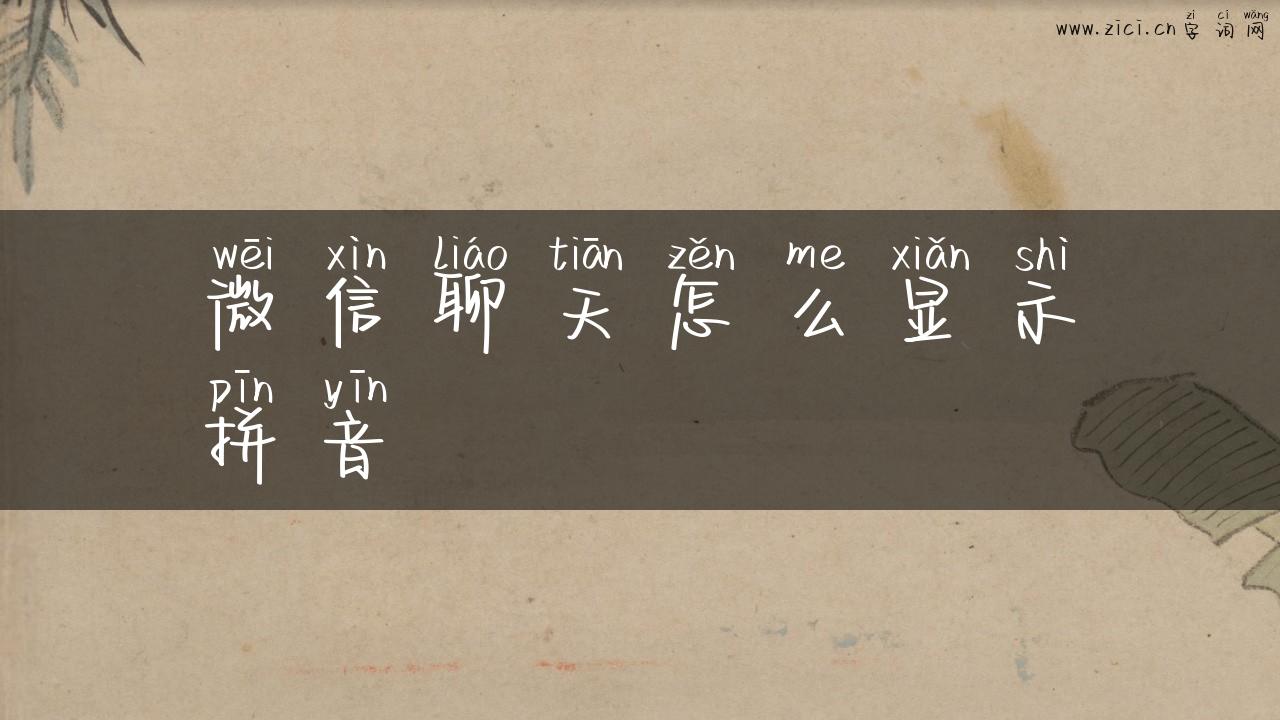 www.zici.cn 字词网
zì cí wǎng
wēi xìn liáo tiān zěn me xiǎn shì
微信聊天怎么显示
pīn yīn
拼音